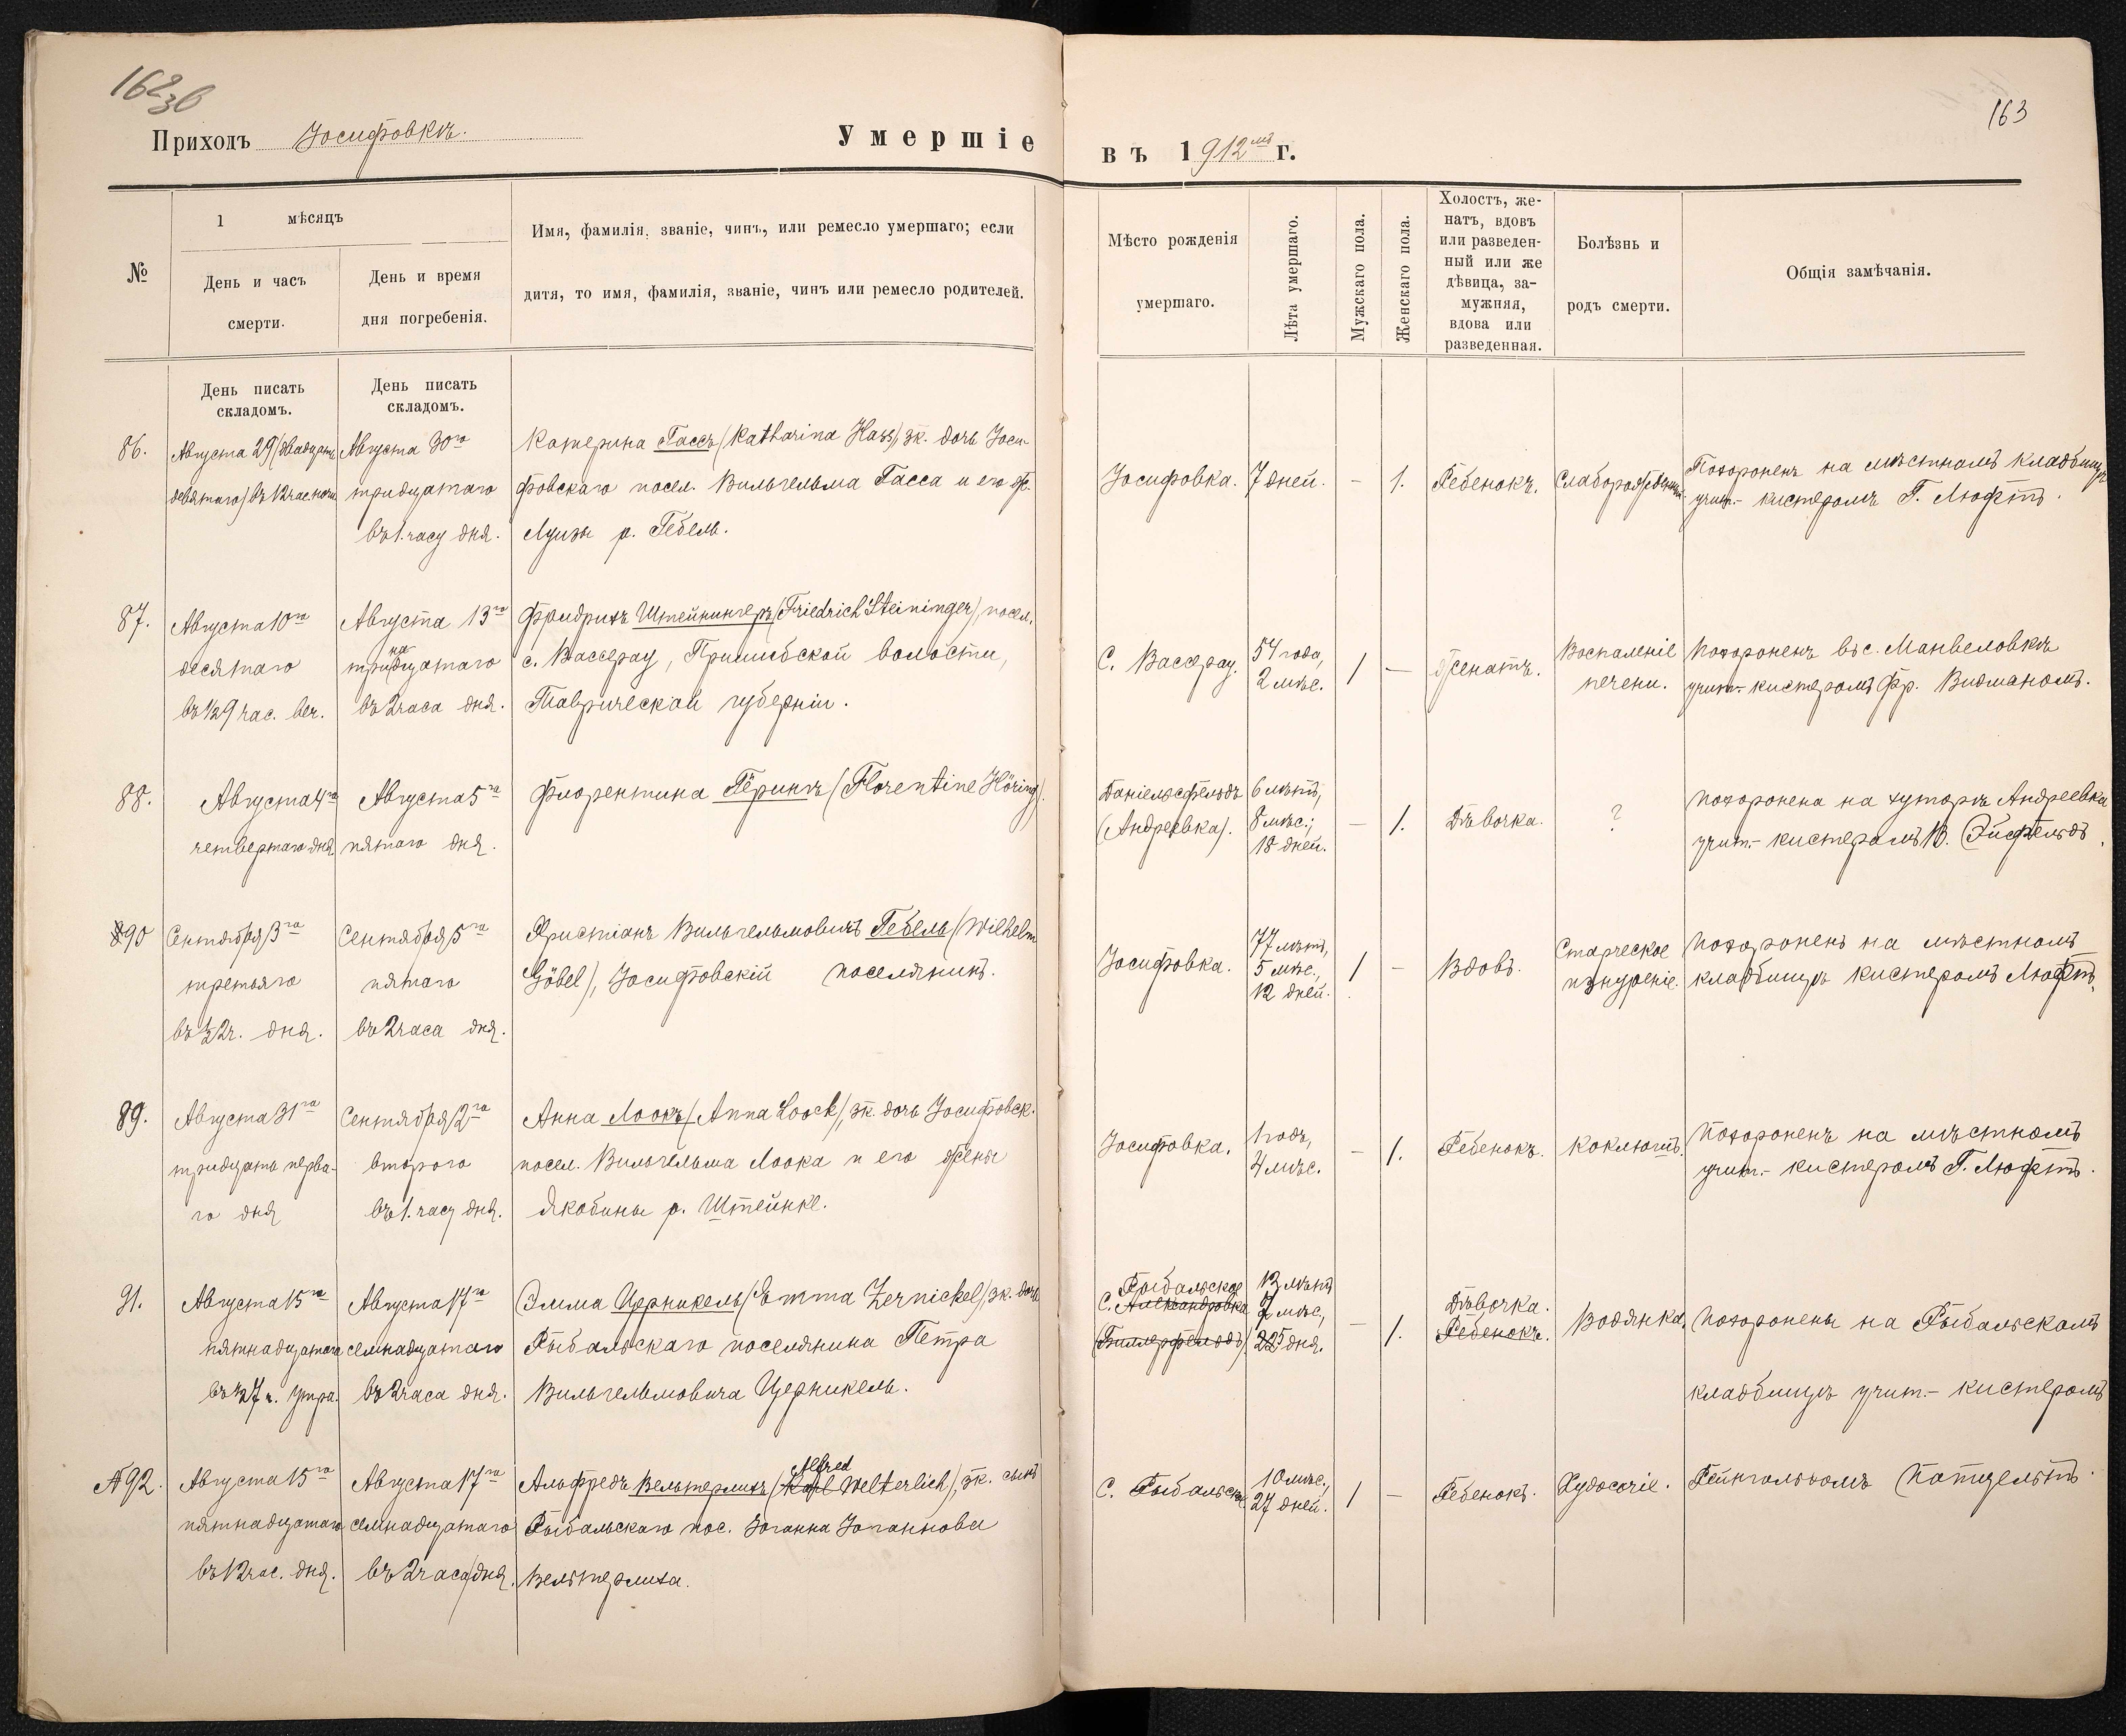 162зв
163
Приходъ Іосифовкѣ.
Умершіе
въ 1912мъ г.
№
1 мѣсяцъ
День и часъ
смерти.
День и время
дня погребенія.
Имя, фамилія, званіе, чинъ, или ремесло умершаго; если
дитя, то имя, фамилія, званіе, чинъ или ремесло родителей.
Мѣсто рожденія
умершаго.
Лѣта умершаго.
Мужскаго пола.
Женскаго пола.
Холостъ, же-
натъ, вдовъ
или разведен-
ный или же
дѣвица, за-
мужняя,
вдова или
разведенная.
Болѣзнь и
родъ смерти.
Общія замѣчанія.
День писать
складомъ.
День писать
складомъ.
86.
Августа 29 (двадцать
девятаго) въ 12 час ночи
Августа 30го
тридцатаго
въ 1. часу дня.
Катерина Гассъ (Katharina Hass), зк. дочь Іоси-
фовскаго посел. Вильгельма Гасса и его ж.
Луизы р. Гебель.
Іосифовка.
7 дней.
-
1.
Ребенокъ.
Слаборожденный
Похороненъ на мѣстномъ кладбищѣ
учит.- кистеромъ Г. Люфтъ.
87.
Августа 10го
десятаго
въ ½9 час. веч.
Августа 13го
тринадцатаго
въ 2 часа дня.
Фридрихъ Штейнингеръ (Friedrich Steininger), посел.
с. Вассерау, Пришибской волости,
Таврической губерніи.
С. Вассерау.
54 года,
2 мѣс.
1
—
Женатъ.
Воспаленіе
печени.
Похороненъ въ с. Манвеловкѣ
учит.- кистеромъ Фр. Видманомъ.
88.
Августа 4го
четвертаго дня
Августа 5го
пятаго дня.
Флорентина Гёрингъ (Florentine Höring).
Даніельсфельдъ
(Андреевка).
6 лѣтъ,
8 мѣс.;
18 дней.
—
1.
Дѣвочка.
?
Похоронена на хуторѣ Андреевка
учит.- кистеромъ В. Эйсфельдъ.
890
Сентября 3го
третьяго
въ ½2ч. дня.
Сентября 5го
пятаго
въ 2 часа дня.
Христіанъ Вильгельмовичъ Гебель (Wilhelm
Göbel), Іосифовскій поселянинъ.
Іосифовка.
77 лѣтъ,
5 мѣс.,
12 дней.
1
-
Вдовъ.
Старческое
изнуреніе.
Похороненъ на мѣстномъ
кладбищѣ кистеромъ Люфтъ.
89.
Августа 31го
тридцать перва-
го дня
Сентября 2го
второго
въ 1. часу дня.
Анна Лоокъ (Anna Loock), зк. дочь Іосифовск.
посел. Вильгельма Лоока и его жены
Якобины р. Штейнке.
Іосифовка.
1 годъ,
4 мѣс.
-
1.
Ребенокъ.
Коклюшъ.
Похороненъ на мѣстномъ
учит.- кистеромъ Г. Люфтъ.
91.
Августа 15го
пятнадцатаго
въ ½7 ч. утра.
Августа 17го
семнадцатаго
въ 2 часа дня.
Эмма Церникель (Emma Zernickel), зк. дочь
Рыбальскаго поселянина Петра
Вильгельмовича Церникель.
Рыбальское
с. Александровка
(Биллерфельдъ)
12 лѣтъ
7 мѣс.,
25 дня.
-
1.
Дѣвочка.
Ребенокъ.
Водянка.
Похоронены на Рыбальскомъ
кладбищѣ учит.- кистеромъ
92.
Августа 15го
пятнадцатаго
въ 12 час. дня.
Августа 17го
семнадцатаго
въ 2 часа дня.
Alfred
Альфредъ Вельтерлихъ (Karl Welterlich), зк. сынъ
Рыбальскаго пос. Іоганна Іоганнова
Вельтерлиха.
С. Рыбальское
10 мѣс.,
27 дней.
1
-
Ребенокъ.
Худосочіе.
Рейнгольдомъ Патцельтъ.